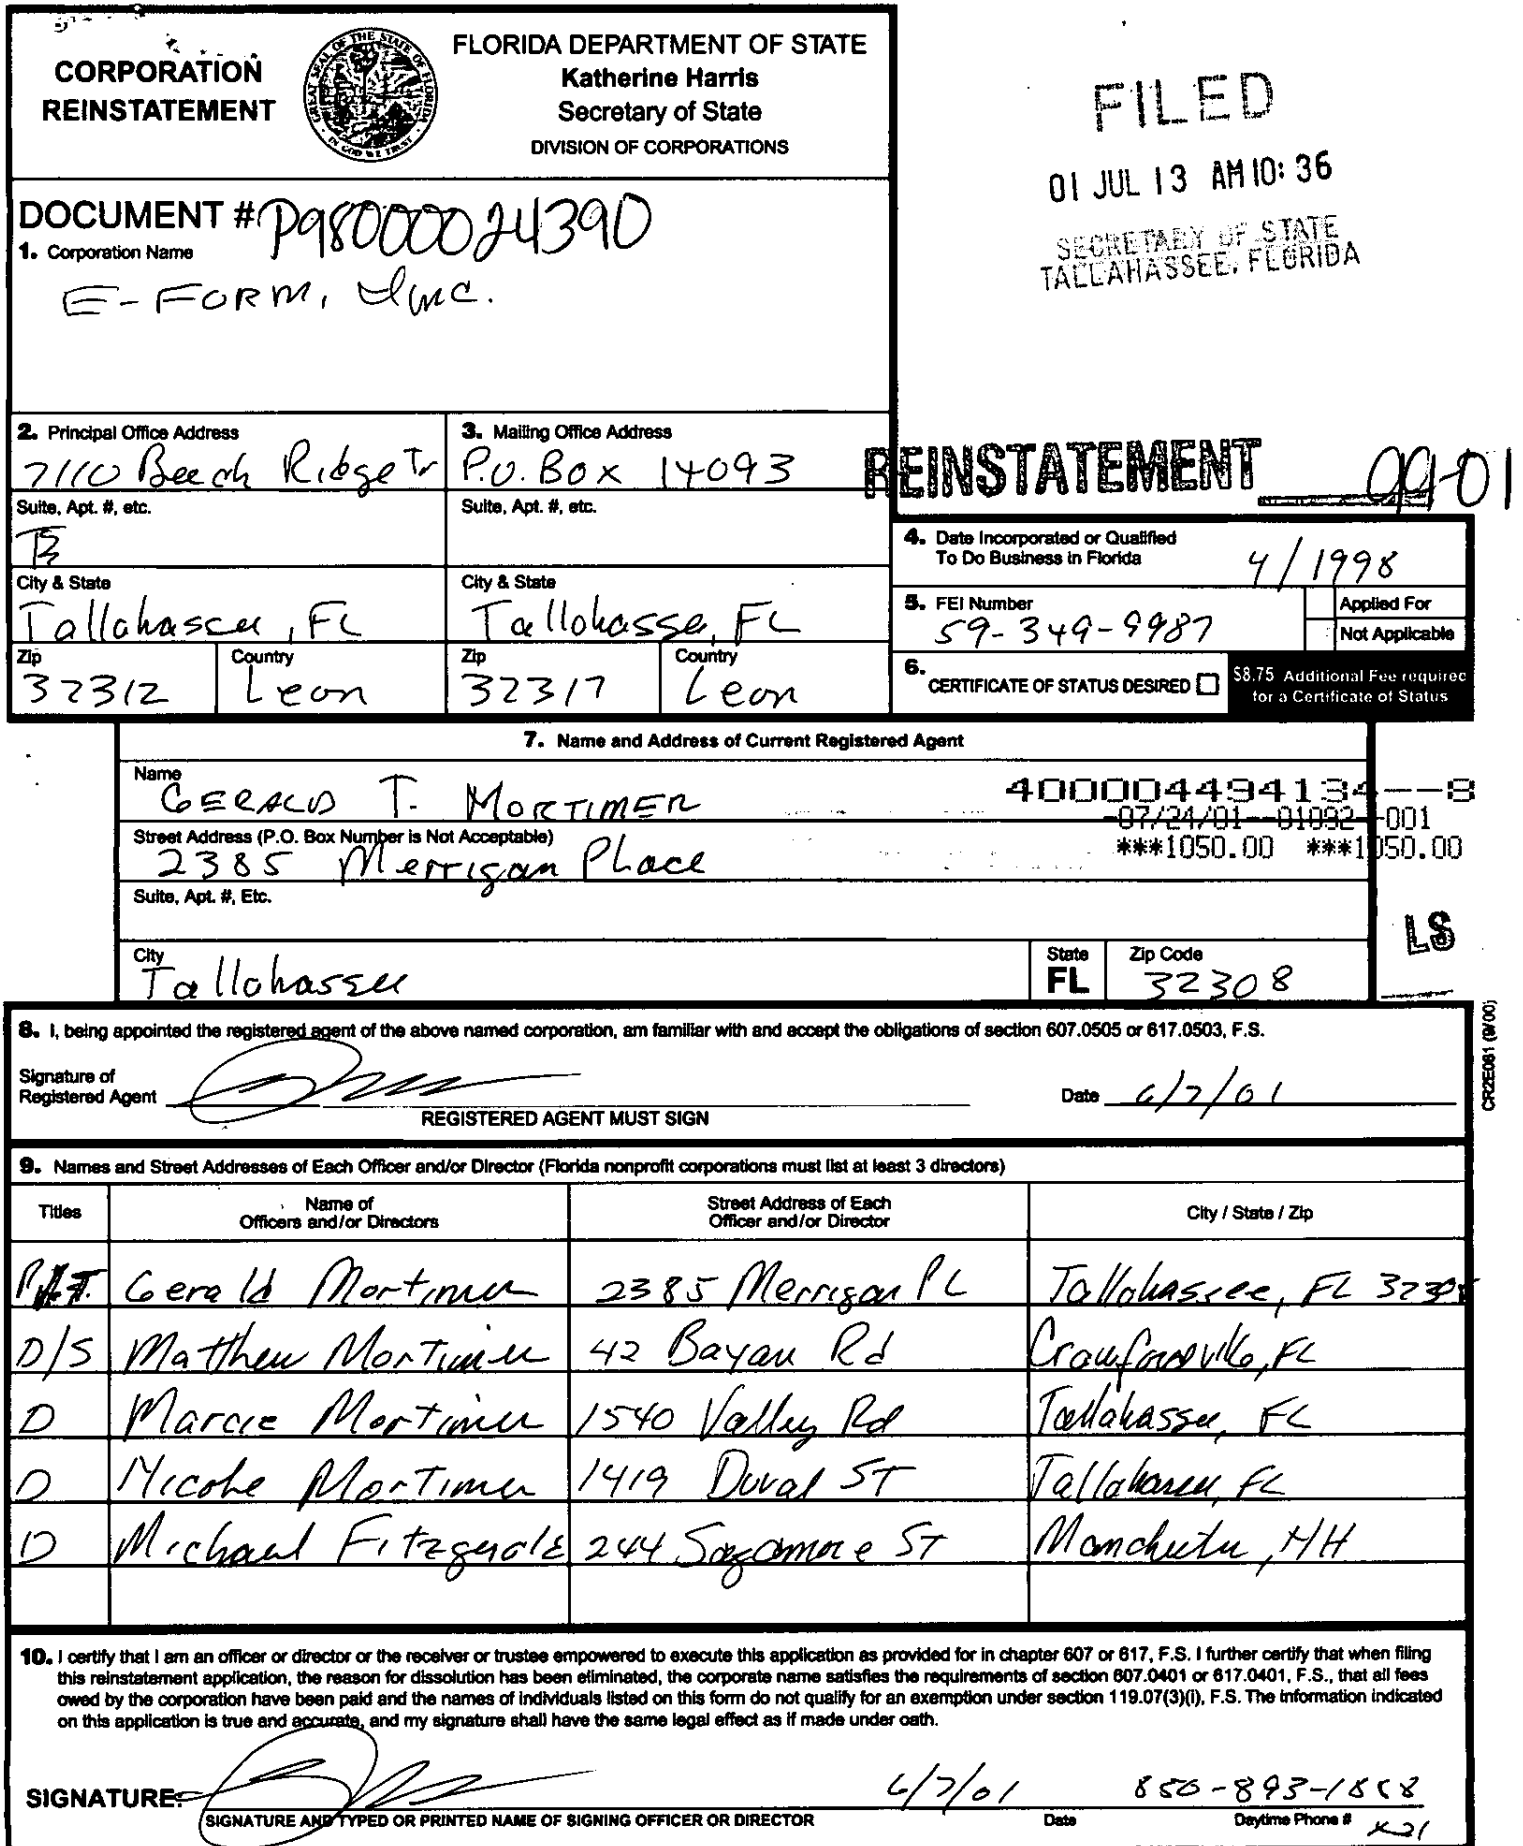 CORPORATION
REINSTATEMENT
GREAT SEAL OF THE STATE OF FLORIDA
IN GOD WE TRUST
FLORIDA DEPARTMENT OF STATE
Katherine Harris
Secretary of State
DIVISION OF CORPORATIONS
FILED
01 JUL 13 AM 10: 36
SECRETARY OF STATE
TALLAHASSEE, FLORIDA
DOCUMENT # P98000024390
1. Corporation Name
E-FORM, Inc.
2. Principal Office Address
7110 Beech Ridge Tr
3. Mailing Office Address
P.O. Box 14093
REINSTATEMENT 99-01
Suite, Apt. #, etc.
B
Suite, Apt. #, etc.
City & State
Tallahassee, FL
City & State
Tallahasse, FL
Zip
32312
Country
Leon
Zip
32317
Country
Leon
4. Date Incorporated or Qualified
To Do Business in Florida
4/1998
5. FEI Number
59-349-9987
Applied For
Not Applicable
6. CERTIFICATE OF STATUS DESIRED
$8.75 Additional Fee required
for a Certificate of Status
7. Name and Address of Current Registered Agent
Name
GERALD T. MORTIMER
400004494134--8
-07/24/01--01092--001
***1050.00 ***1050.00
Street Address (P.O. Box Number is Not Acceptable)
2385 Merrigan Place
Suite, Apt. #, Etc.
LS
City
Tallahassee
State
FL
Zip Code
32308
8. I, being appointed the registered agent of the above named corporation, am familiar with and accept the obligations of section 607.0505 or 617.0503, F.S.
Signature of
Registered Agent
REGISTERED AGENT MUST SIGN
Date 6/7/01
CR2E081 (9/00)
9. Names and Street Addresses of Each Officer and/or Director (Florida nonprofit corporations must list at least 3 directors)
Titles
Name of
Officers and/or Directors
Street Address of Each
Officer and/or Director
City / State / Zip
Gerald Mortimer 2385 Merrigan PL Tallahassee, FL 32308
D/S Matthew Mortimer 42 Bayan Rd Crawfordville, FL
D Marcie Mortimer 1540 Valley Rd Tallahassee, FL
D Nicole Mortimer 1419 Duval ST Tallahassee, FL
D Michael Fitzgerald 244 Sagamore ST Manchester, NH
10. I certify that I am an officer or director or the receiver or trustee empowered to execute this application as provided for in chapter 607 or 617, F.S. I further certify that when filing
this reinstatement application, the reason for dissolution has been eliminated, the corporate name satisfies the requirements of section 607.0401 or 617.0401, F.S., that all fees
owed by the corporation have been paid and the names of individuals listed on this form do not qualify for an exemption under section 119.07(3)(i), F.S. The information indicated
on this application is true and accurate, and my signature shall have the same legal effect as if made under oath.
SIGNATURE:
6/7/01
850-893-1888
SIGNATURE AND TYPED OR PRINTED NAME OF SIGNING OFFICER OR DIRECTOR
Date
Daytime Phone #
x-21